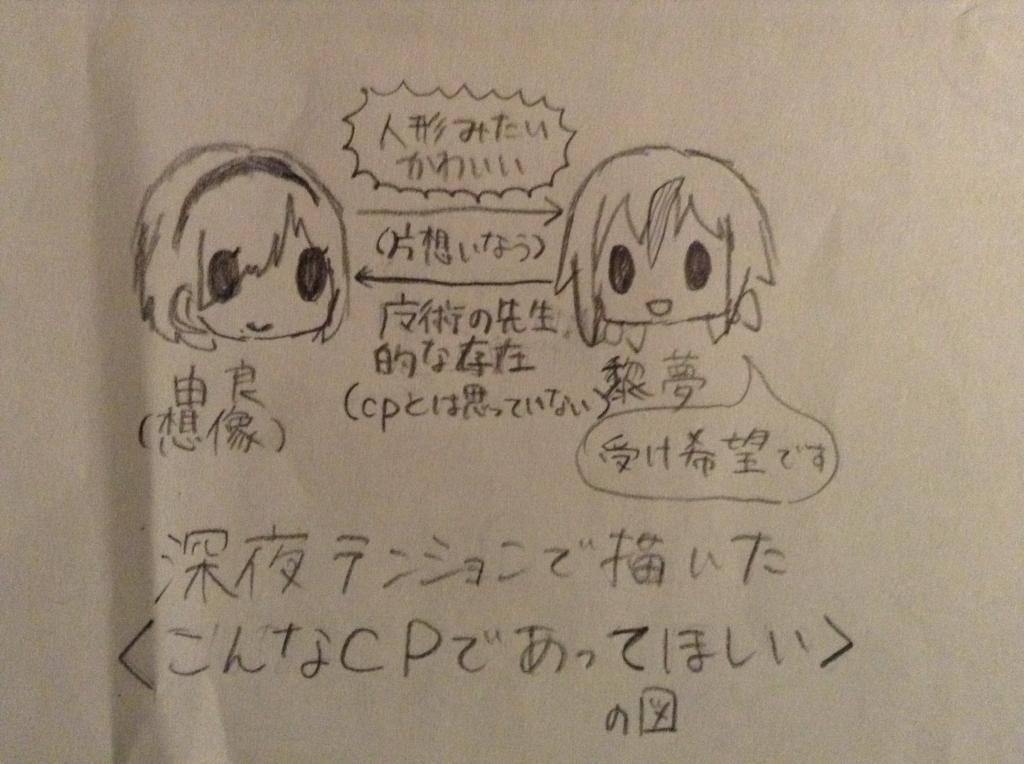 人形みたい
かわいい
(片想いなう)
魔術の先生
的な存在
(cpとは思っていない)
由良
(想像)
黎夢
受け希望です
深夜テンションで描いた
<こんなCPであってほしい>
の図